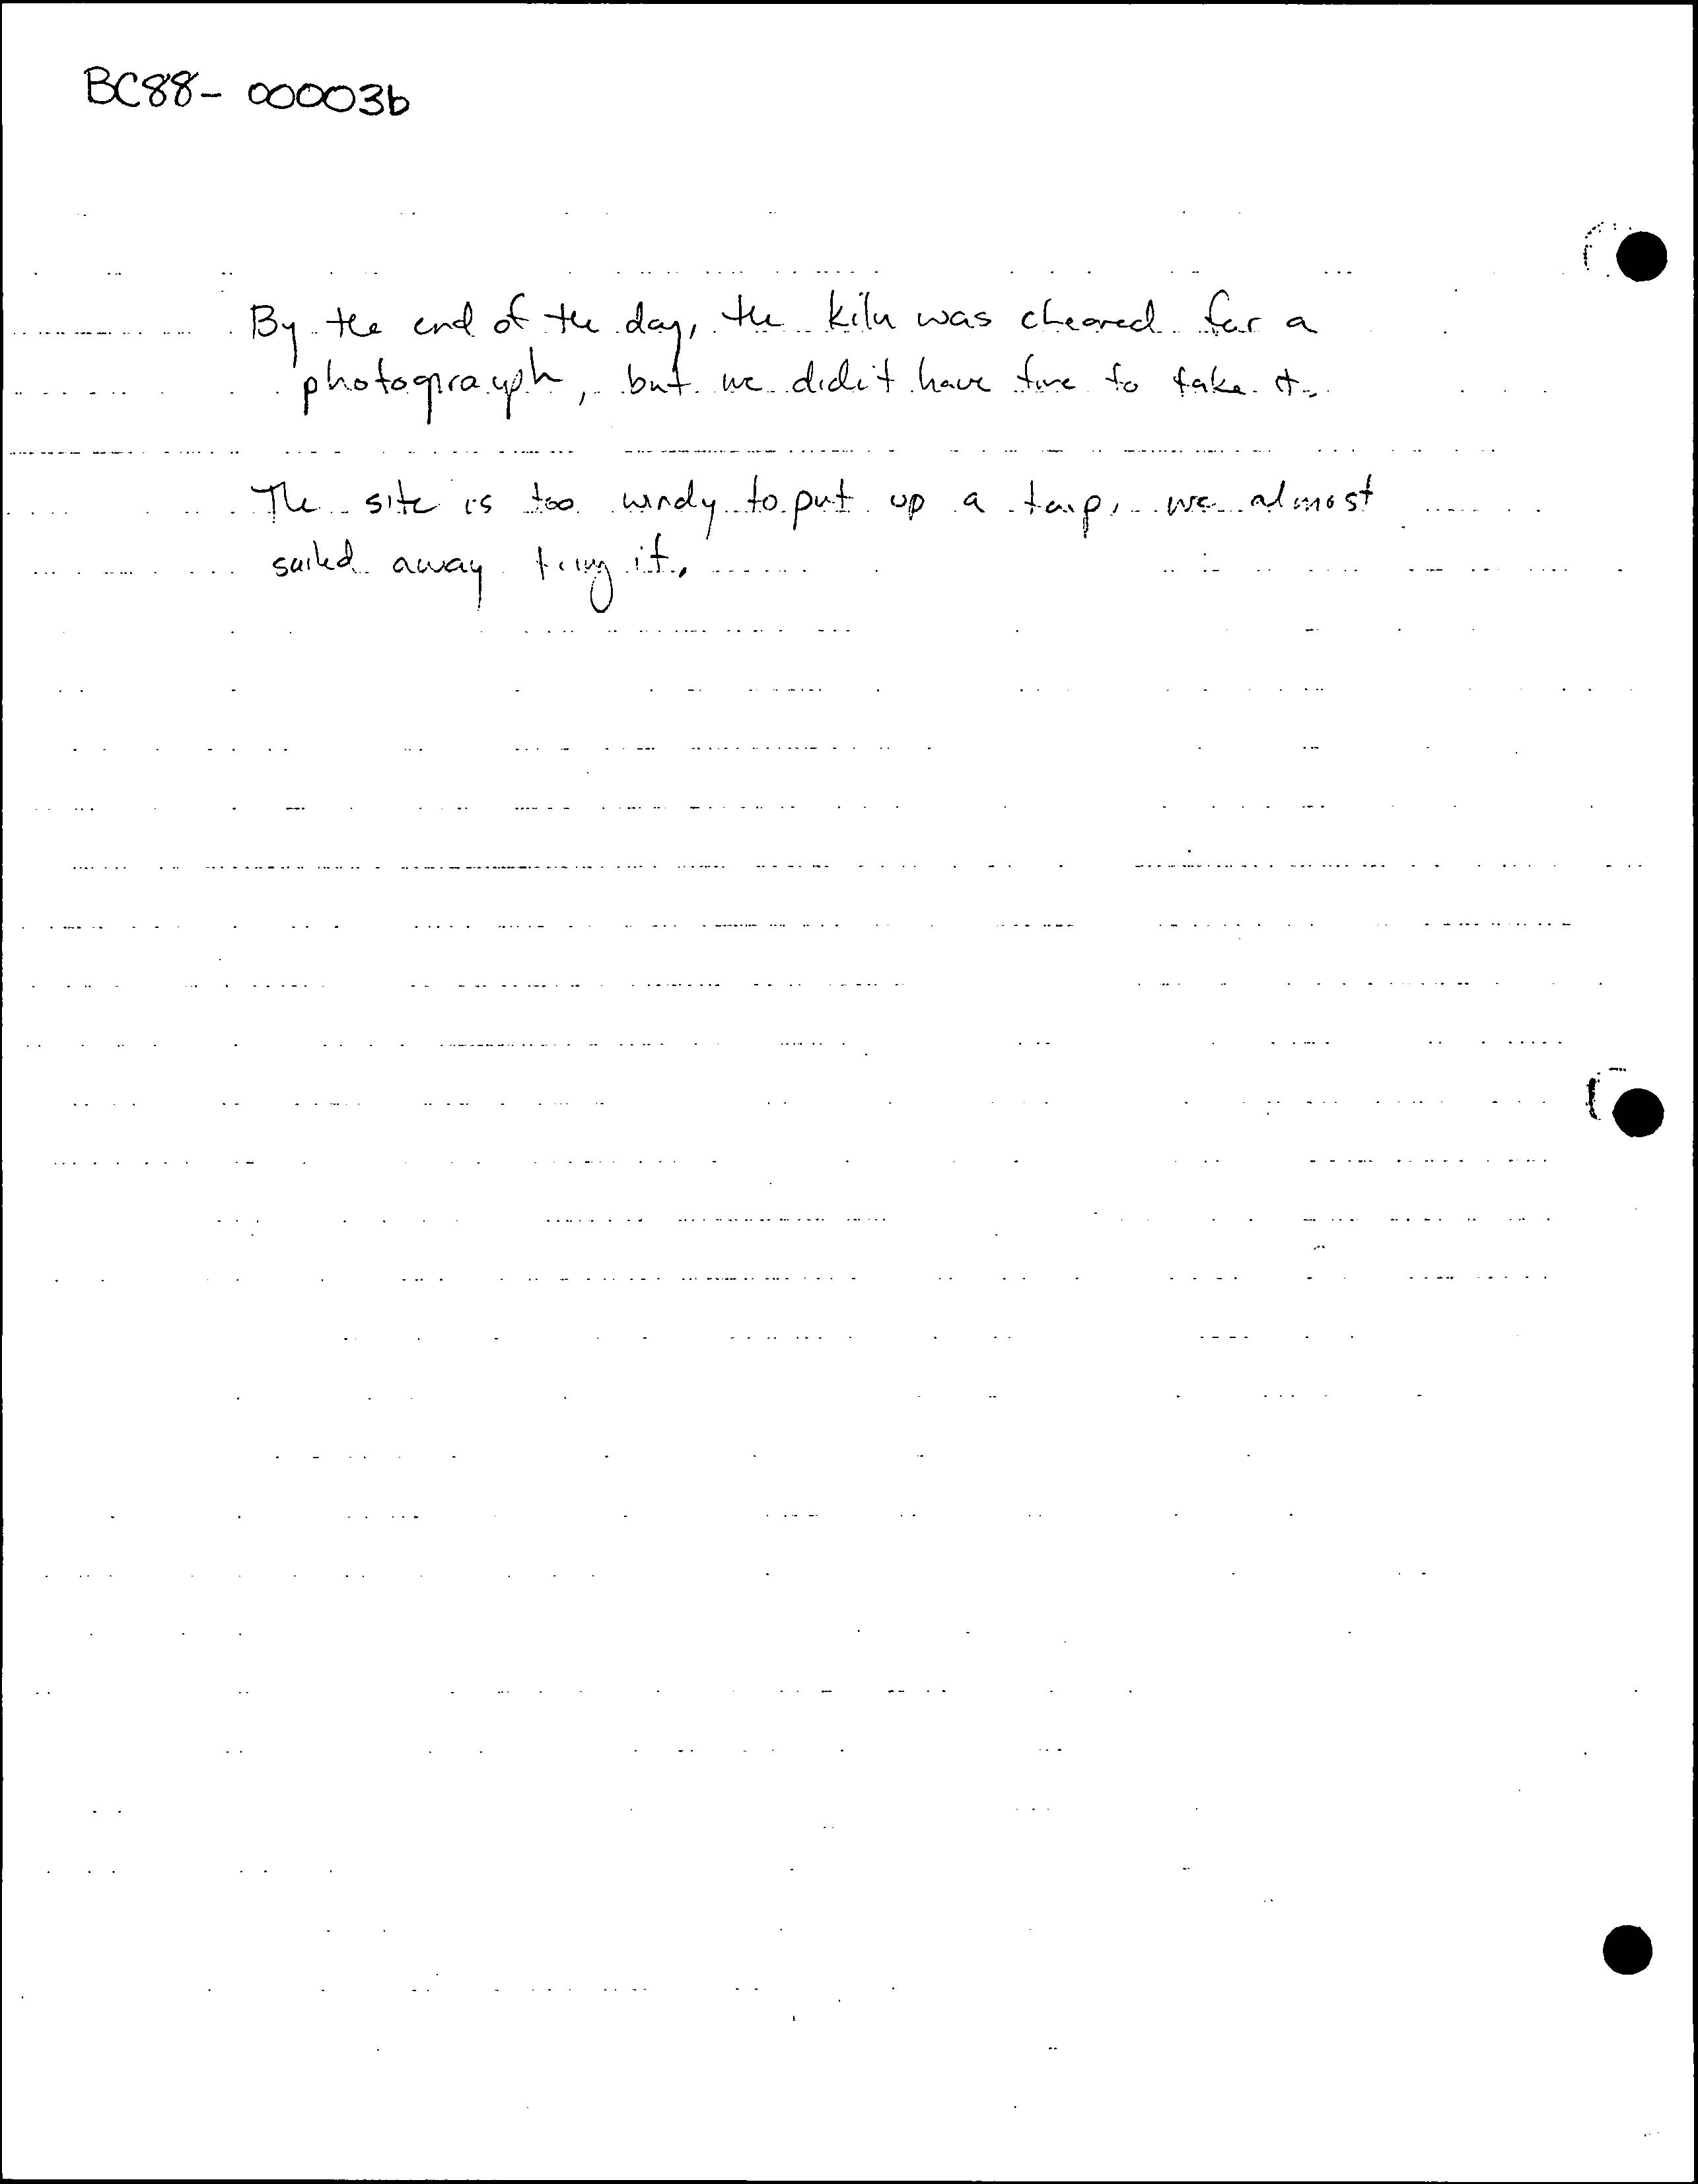 BC88-00003b
By the end of the day, the kiln was cleared for a
photograph, but we didn't have time to take it.
The site is too windy to put up a tarp, we almost
sailed away trying it.